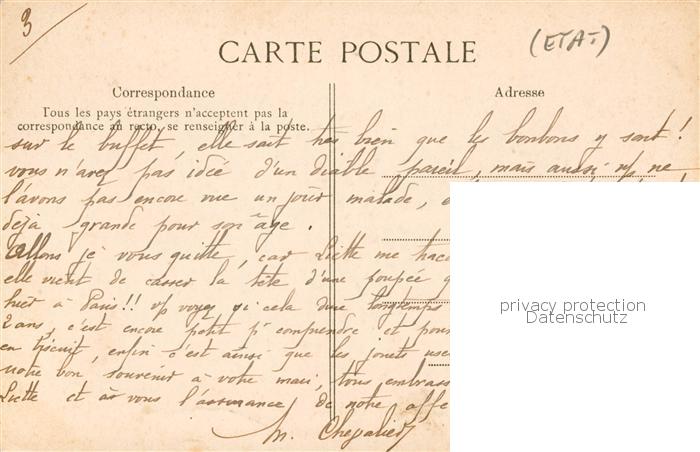 3
(ETAT)
CARTE POSTALE
Correspondance
Adresse
Tous les pays étrangers n'acceptent pas la
correspondance au recto, se renseigner à la poste.
sur le buffet, elle sait très bien que les bonbons y sont!
vous n'avez pas idée d'un diable pareil, mais aussi ns ne
l'avons pas encore vue un jour malade,
déjà grande pour son âge.
Allons je vous quitte, car Liette me
elle vient de casser la tête d'une poupée
hier à Paris!! vs voyez si cela dure longtemps
2 ans, c'est encore petit pr comprendre et pour
en biscuit, enfin c'est ainsi que les jouets
notre bon souvenir à votre mari,
Liette et à vous l'assurance de notre
M. Chevalier
privacy protection
Datenschutz